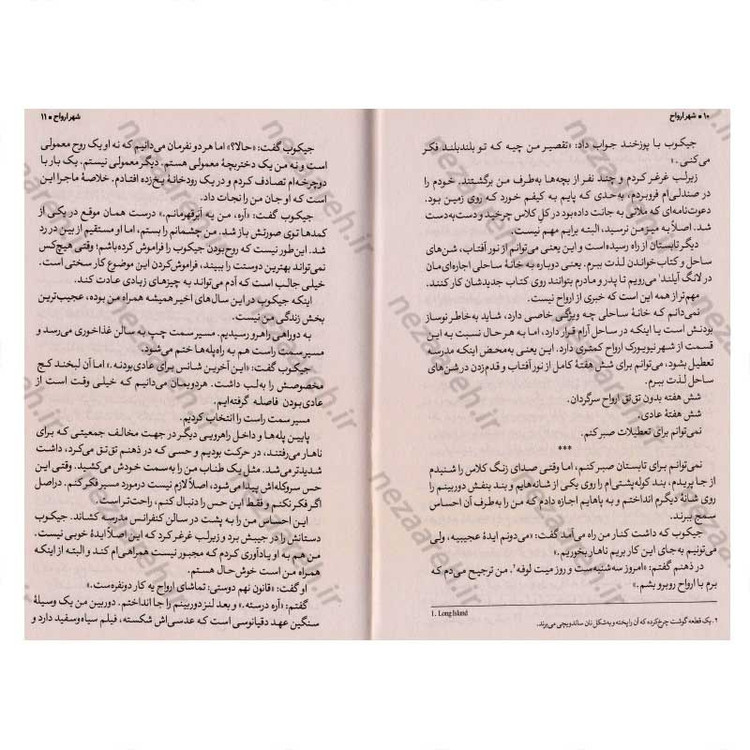 ۱۰ ■ شهر ارواح
جیکوب با پوزخند جواب داد: «تقصیر من چیه که تو بلندبلند فکر
می‌کنی.»
زیرلب غرغر کردم و چند نفر از بچه‌ها به‌طرف من برگشتند. خودم را
در صندلی‌ام فروبردم، به‌حدی که پایم به کیفم خورد که روی زمین بود.
دعوت‌نامه‌ای که ملانی به جانت داده‌بود در کل کلاس چرخید و دست‌به‌دست
شد. اصلاً به میز من نرسید، البته برایم مهم نیست.
دیگر تابستان از راه رسیده است و این یعنی می‌توانم از نور آفتاب، شن‌های
ساحل و کتاب‌خواندن لذت ببرم. یعنی دوباره به خانهٔ ساحلی اجاره‌ای‌مان
در لانگ آیلند۱ می‌رویم تا پدر و مادرم بتوانند روی کتاب جدیدشان کار کنند.
مهم‌تر از همه این است که خبری از ارواح نیست.
نمی‌دانم که خانهٔ ساحلی چه ویژگی خاصی دارد، شاید به‌خاطر نوساز
بودنش است یا اینکه در ساحل آرام قرار دارد، اما به هر حال نسبت به این
قسمت از شهر نیویورک ارواح کمتری دارد. این یعنی به‌محض اینکه مدرسه
تعطیل بشود، می‌توانم برای شش هفتهٔ کامل از نور آفتاب و قدم‌زدن در شن‌های
ساحل لذت ببرم.
شش هفته بدون تق‌تق ارواح سرگردان.
شش هفتهٔ عادی.
نمی‌توانم برای تعطیلات صبر کنم.
***
نمی‌توانم برای تابستان صبر کنم، اما وقتی صدای زنگ کلاس را شنیدم
از جا پریدم، بند کوله‌پشتی‌ام را روی یکی از شانه‌هایم و بند بنفش دوربینم را
روی شانهٔ دیگرم انداختم و به پاهایم اجازه دادم که من را به‌طرف آن احساس
سمج ببرند.
جیکوب که داشت کنار من راه می‌آمد گفت: «می‌دونم ایدهٔ عجیبیه، ولی
می‌تونیم به‌جای این کار بریم ناهار بخوریم.»
در ذهنم گفتم: «امروز سه‌شنبه‌ست و روز میت لوفه۲. من ترجیح می‌دم که
برم با ارواح روبرو بشم.»
1. Long Island
۲. یک قطعه گوشت چرخ‌کرده که آن را پخته و به‌شکل نان ساندویچی می‌برند.
شهر ارواح ■ ۱۱
جیکوب گفت: «حالا؟» اما هر دو نفرمان می‌دانیم که نه او یک روح معمولی
است و نه من یک دختربچهٔ معمولی هستم. دیگر معمولی نیستم. یک بار با
دوچرخه‌ام تصادف کردم و در یک رودخانهٔ یخ‌زده افتادم. خلاصهٔ ماجرا این
است که او جان من را نجات داد.
جیکوب گفت: «آره، من یه آبَرقهرمانم.» درست همان موقع در یکی از
کمدها توی صورتش باز شد. من چشمانم را بستم، اما او مستقیم از بین در رد
شد. این‌طور نیست که روح بودن جیکوب را فراموش کرده‌باشم؛ وقتی هیچ‌کس
نمی‌تواند بهترین دوستت را ببیند، فراموش‌کردن این موضوع کار سختی است.
خیلی جالب است که آدم می‌تواند به چیزهای زیادی عادت کند.
اینکه جیکوب در این سال‌های اخیر همیشه همراه من بوده، عجیب‌ترین
بخش زندگی من نیست.
به دوراهی راهرو رسیدیم. مسیر سمت چپ به سالن غذاخوری می‌رسد و
مسیر سمت راست هم به راه‌پله‌ها ختم می‌شود.
جیکوب گفت: «این آخرین شانس برای عادی‌بودنه.» اما آن لبخند کج
مخصوصش را به‌لب داشت. هردویمان می‌دانیم که خیلی وقت است از
عادی‌بودن فاصله گرفته‌ایم.
مسیر سمت راست را انتخاب کردیم.
پایین پله‌ها و داخل راهرویی دیگر در جهت مخالف جمعیتی که برای
ناهار می‌رفتند، در حرکت بودیم و حسی که در ذهنم تق‌تق می‌کرد، داشت
شدیدتر می‌شد. مثل یک طناب من را به سمت خودش می‌کشید. وقتی این
حس سروکله‌اش پیدا می‌شود، اصلاً لازم نیست درمورد مسیر فکر کنم. دراصل
اگر فکر نکنم و فقط این حس را دنبال کنم، راحت‌تر است.
این احساس من را به پشت در سالن کنفرانس مدرسه کشاند. جیکوب
دستانش را در جیبش برد و زیرلب غرغر کرد که این اصلاً ایدهٔ خوبی نیست.
من هم به او یادآوری کردم که مجبور نیست همراهی‌ام کند و البته از اینکه
همراه من است خوش‌حال هستم.
او گفت: «قانون نهم دوستی: تماشای ارواح یه کار دونفره‌ست.»
گفتم: «آره درسته.» و بعد لنز دوربینم را جا انداختم. دوربین من یک وسیلهٔ
سنگین عهد دقیانوسی است که عدسی‌اش شکسته، فیلم سیاه‌وسفید دارد و
nezaareh.ir